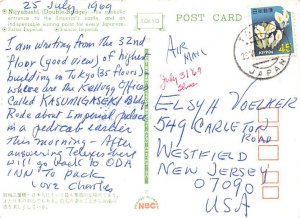 25 July 1969
Nijyubashi (Double
entrance to the
Palace
and is
indispensable seeing point for every
Imperial
TOKYO
POST CARD
I am writing from the 32nd
floor (good view) of highest
building in Tokyo (35 floors)
where are the Kellogg Offices
Called KASUMIGASEKI Bldg
Rode about Imperial palace
in a pedicab earlier
this morning - After
answering Telexes there
will go back to ODA
INN to pack
Love Charles
AIR
MAIL
July 31 '69
ELSY H VOELKER
549 CARLETON
ROAD
WESTFIELD
NEW JERSEY
07090
USA
NIPPON
45
JAPAN
NBC